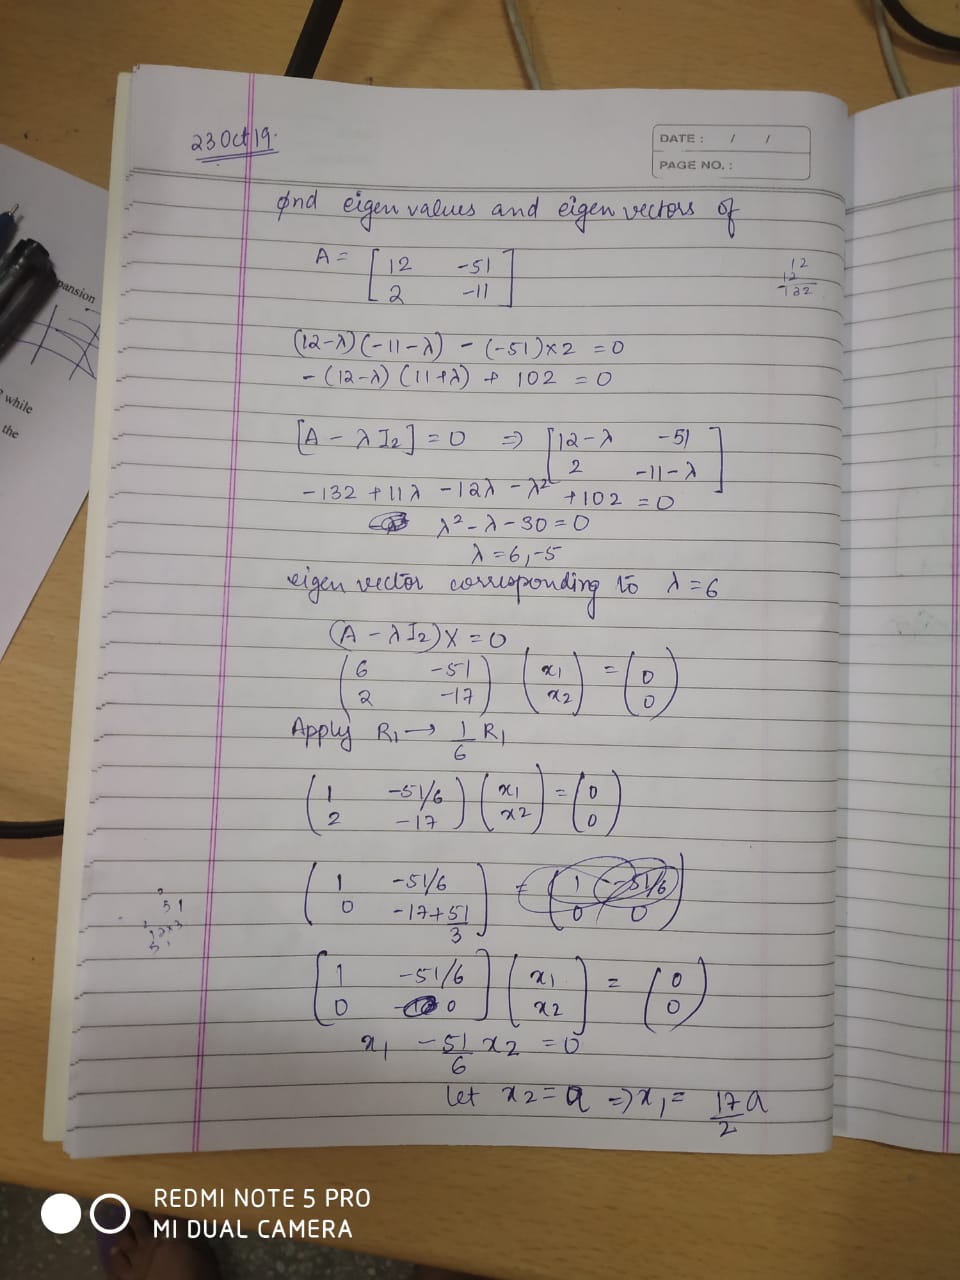 23 Oct 19.
DATE : / /
PAGE NO. :
find eigen values and eigen vectors of
A = [ 12 -51
2 -11 ]
12
12
132
pansion
while
the
(12-λ)(-11-λ) - (-51)×2 = 0
-(12-λ)(11+λ) + 102 = 0
[A - λI₂] = 0 ⇒ [ 12-λ -51
2 -11-λ ]
-132 + 11λ - 12λ - λ² + 102 = 0
λ² - λ - 30 = 0
λ = 6, -5
eigen vector corresponding to λ = 6
(A - λI₂)X = 0
( 6 -51 ) ( x₁ ) = ( 0 )
( 2 -17 ) ( x₂ ) ( 0 )
Apply R₁ → 1/6 R₁
( 1 -51/6 ) ( x₁ ) = ( 0 )
( 2 -17 ) ( x₂ ) ( 0 )
( 1 -51/6 ) = ( 1 -51/6 )
( 0 -17+51/3 ) ( 0 0 )
51
[ 1 -51/6 ] [ x₁ ] = ( 0 )
[ 0 0 ] [ x₂ ] ( 0 )
x₁ - 51/6 x₂ = 0
let x₂ = a ⇒ x₁ = 17/2 a
REDMI NOTE 5 PRO
MI DUAL CAMERA